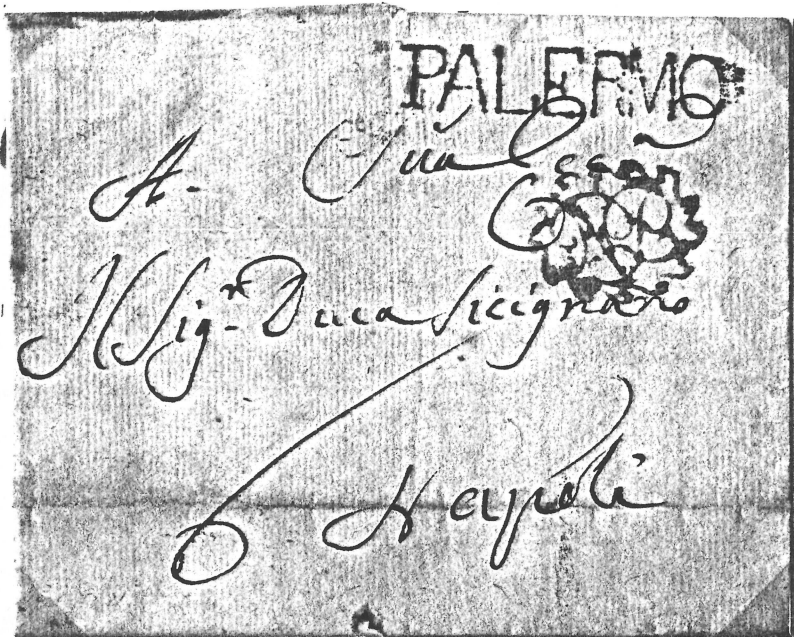 PALERMO
A. Sua
Il Sig.r Duca Sicignano
Napoli